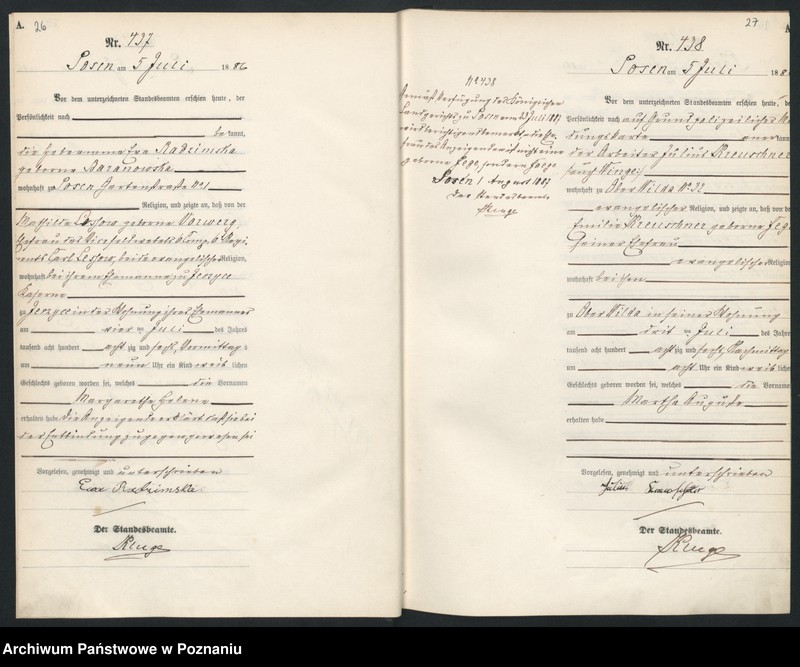 A. 26
Nr. 437
Posen am 5 Juli 1886
Vor dem unterzeichneten Standesbeamten erschien heute, der
Persönlichkeit nach
bekannt,
die Hebamme Eva Radzimska
geborene Baranowska
wohnhaft zu Posen Gartenstraße No 1
Religion, und zeigte an, daß von der
Mathilde Lossow geborene Vorwerg
Ehefrau des Vicefeldwebels 6 Comp. 6 Regi-
ments Carl Lossow, beide evangelischer Religion,
wohnhaft bei ihrem Ehemanne zu Jerzyce
Kaserne
zu Jerzyce in der Wohnung ihres Ehemannes
am vier ten Juli des Jahres
tausend acht hundert acht zig und sechs, Vormittag s
um neun Uhr ein Kind weib lichen
Geschlechts geboren worden sei, welches die Vornamen
Margarethe Helene
erhalten habe. Die Anzeigende erklärt daß sie bei
der Entbindung zugegen gewesen sei
Vorgelesen, genehmigt und unterschrieben
Eva Radzimska
Der Standesbeamte.
Ruge
No 438
Gemäß Verfügung des Königlichen
Landgerichts zu Posen vom 23 Juli 1887
wird berichtigend bemerkt, daß die Ehe-
frau des Anzeigenden nicht eine
geborene Fege, sondern
Posen 1 August 1887
Der Standesbeamte
Ruge
27
A
Nr. 438
Posen am 5 Juli 188
Vor dem unterzeichneten Standesbeamten erschien heute, de
Persönlichkeit nach auf Grund polizeilicher
dungskarte aner kann
der Arbeiter Julius Kreuschner
wohnhaft zu Ober Wilda No 32
evangelischer Religion, und zeigte an, daß von de
Emilie Kreuschner geborene Feg
seiner Ehefrau
evangelischer Religion
wohnhaft bei ihm
zu Ober Wilda in seiner Wohnung
am drit ten Juli des Jahre
tausend acht hundert acht zig und sechs, Nachmittag
um acht Uhr ein Kind weib liche
Geschlechts geboren worden sei, welches die Vorname
Martha Auguste
erhalten habe
Vorgelesen, genehmigt und unterschrieben
Julius
Der Standesbeamte.
Ruge
Archiwum Państwowe w Poznaniu